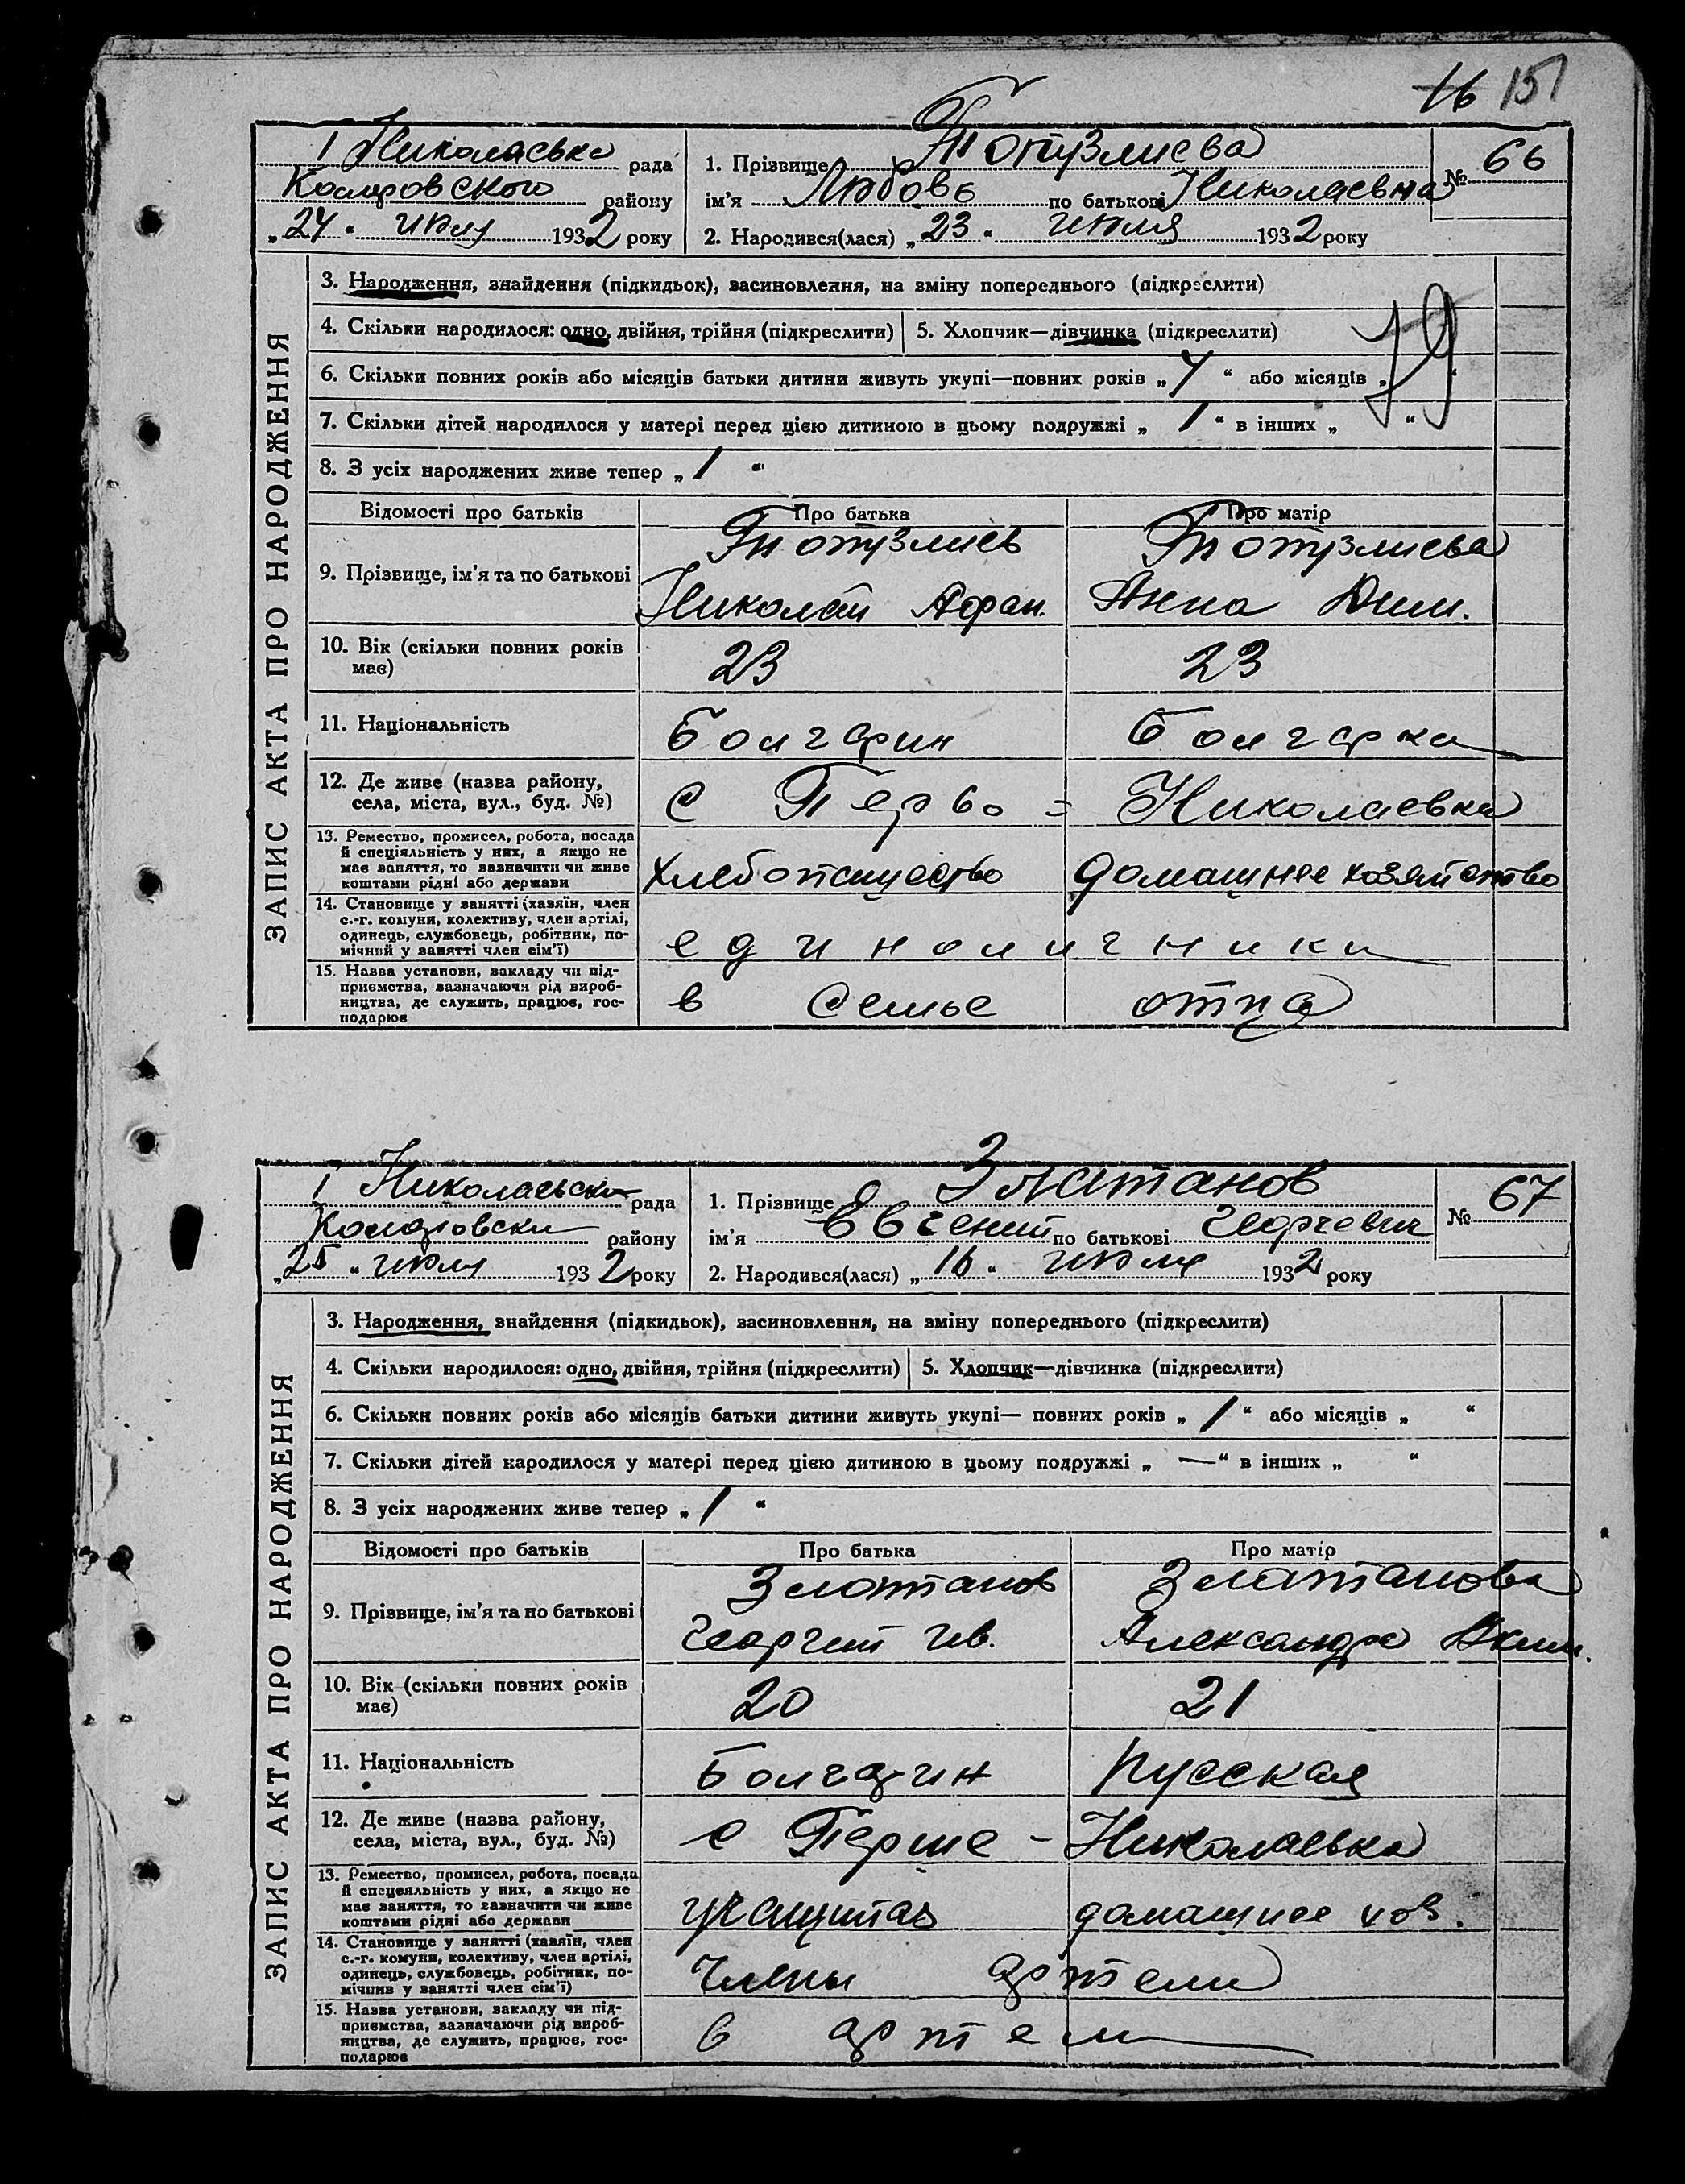 16 151
І Николаевска рада
1. Прізвище Топузлиева
№ 66
Комаровского району
ім'я Любовь по батькові Николаевна
„24“ июля 1932 року
2. Народився(лася) „23“ июля 1932 року
ЗАПИС АКТА ПРО НАРОДЖЕННЯ
3. Народження, знайдення (підкидьок), васиновлення, на зміну попереднього (підкреслити)
4. Скільки народилося: одно, двійня, трійня (підкреслити) 5. Хлопчик—дівчинка (підкреслити)
6. Скільки повних років або місяців батьки дитини живуть укупі—повних років „ “ або місяців „ “
7. Скільки дітей народилося у матері перед цією дитиною в цьому подружжі „ 1 “ в інших „ “
8. З усіх народжених живе тепер „ 1 “
Відомості про батьків Про батька Про матір
9. Прізвище, ім'я та по батькові
Топузлиев Топузлиева
Николай Афан. Анна Дим.
10. Вік (скільки повних років має)
23 23
11. Національність
Болгарин Болгарка
12. Де живе (назва району, села, міста, вул., буд. №)
с Перво = Николаевка
13. Ремество, промисел, робота, посада
й спеціяльність у них, а якщо не
має заняття, то зазначити чи живе
коштами рідні або держави
Хлебопашество домашнее хозяйство
14. Становище у занятті (хазяїн, член
с.-г. комуни, колективу, член артілі,
одинець, службовець, робітник, по-
мічний у занятті член сім'ї)
единоличники
15. Назва установи, закладу чи під-
приємства, зазначаючи рід вироб-
ництва, де служить, працює, гос-
подарює
в семье отца
І Николаевска рада
1. Прізвище Златанов
№ 67
району
ім'я Евгений по батькові Георгиевич
„25“ июля 1932 року
2. Народився(лася) „16“ июля 1932 року
ЗАПИС АКТА ПРО НАРОДЖЕННЯ
3. Народження, знайдення (підкидьок), засиновлення, на зміну попереднього (підкреслити)
4. Скільки народилося: одно, двійня, трійня (підкреслити) 5. Хлопчик—дівчинка (підкреслити)
6. Скільки повних років або місяців батьки дитини живуть укупі— повних років „ 1 “ або місяців „ “
7. Скільки дітей народилося у матері перед цією дитиною в цьому подружжі „ — “ в інших „ “
8. З усіх народжених живе тепер „ 1 “
Відомості про батьків Про батька Про матір
9. Прізвище, ім'я та по батькові
Златанов Златанова
Георгий Ив. Александра
10. Вік (скільки повних років має)
20 21
11. Національність
Болгарин Русская
12. Де живе (назва району, села, міста, вул., буд. №)
с Перше - Николаевка
13. Ремество, промисел, робота, посада
й спецеяльність у них, а якщо не
має заняття, то зазначити чи живе
коштами рідні або держави
учащийся домашнее хоз.
14. Становище у занятті (хазяїн, член
с.-г. комуни, колективу, член артілі,
одинець, службовець, робітник, по-
мічнив у занятті член сім'ї)
Члены артели
15. Назва установи, закладу чи під-
приємства, зазначаючи рід вироб-
ництва, де служить, працює, гос-
подарює
в артели